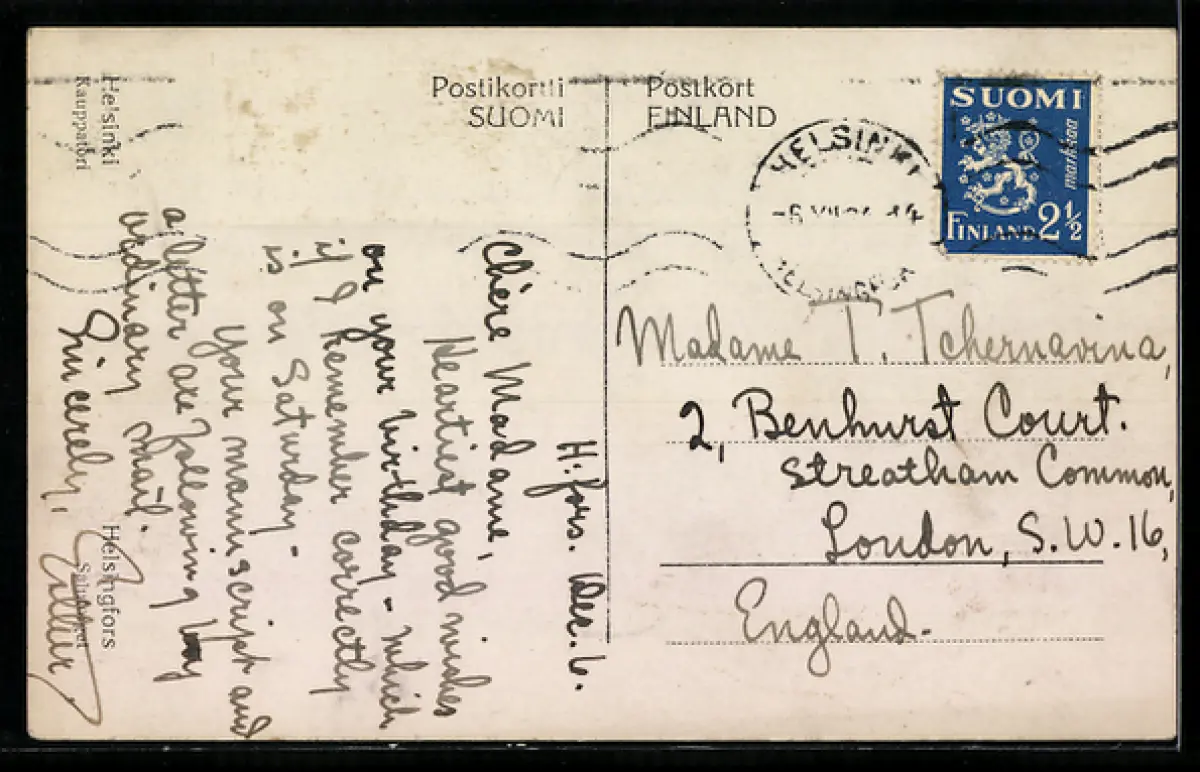 Postikortti
SUOMI
Postkort
FINLAND
Helsinki
Kauppatori
Helsingfors
HELSINKI
HELSINGFORS
SUOMI
markkaa
FINLAND 2½
H:fors. Dec. 6.
Chère Madame,
Heartiest good wishes
on your birthday - which
if I remember correctly
is on Saturday -
Your manuscript and
a letter are following by
ordinary mail.
Sincerely,
Madame T. Tchernavina,
2, Benhurst Court.
Streatham Common,
London, S.W. 16,
England.